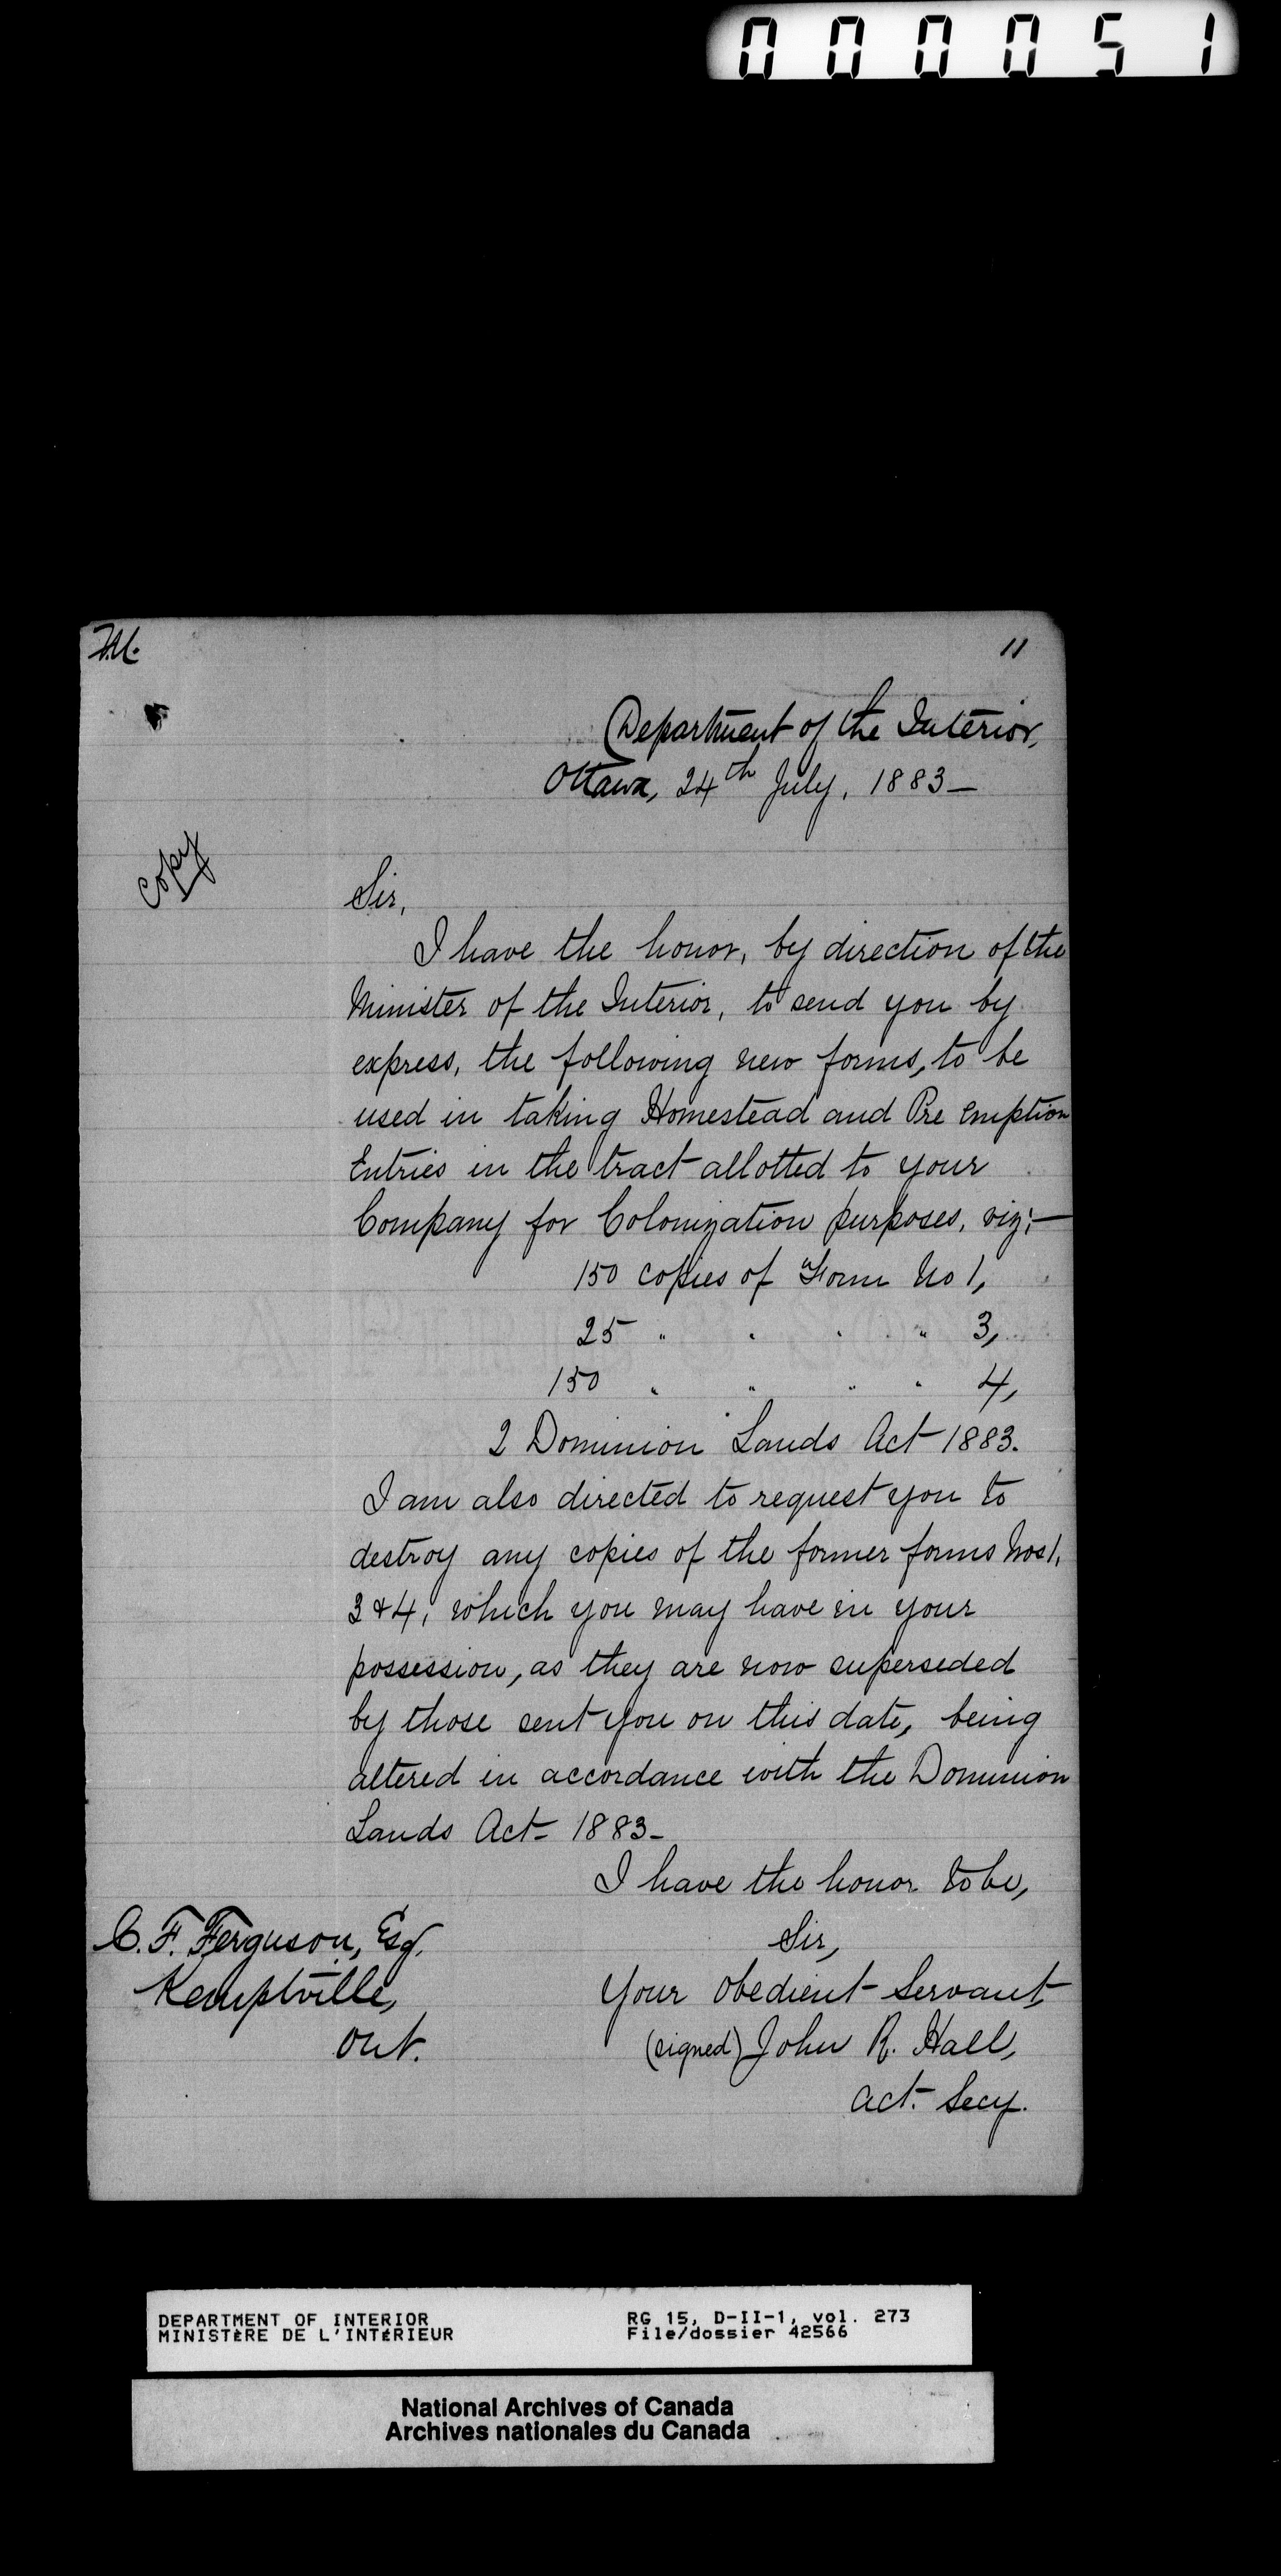 000051
11
Department of the Interior,
Ottawa, 24th July, 1883—
Copy
Sir,
I have the honor, by direction of the
Minister of the Interior, to send you by
express, the following new forms, to be
used in taking Homestead and Pre Emption
Entries in the tract allotted to your
Company for Colonization purposes, viz:—
150 copies of Form No 1,
25 " " " " 3,
150 " " " " 4,
2 Dominion Lands Act 1883.
I am also directed to request you to
destroy any copies of the former forms Nos 1,
3 & 4, which you may have in your
possession, as they are now superseded
by those sent you on this date, being
altered in accordance with the Dominion
Lands Act- 1883-
I have the honor to be,
Sir,
Your Obedient Servant,
(signed) John R. Hall,
Act. Secy.
C. F. Ferguson, Esq.
Kemptville,
Ont.
DEPARTMENT OF INTERIOR
MINISTÈRE DE L'INTÉRIEUR
RG 15, D-II-1, vol. 273
File/dossier 42566
National Archives of Canada
Archives nationales du Canada